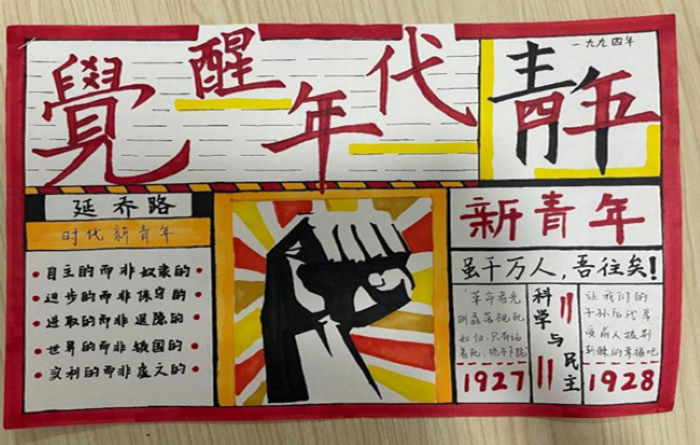 覺醒年代
一九九四年
青年
延乔路
时代新青年
自主的而非奴隶的
进步的而非保守的
进取的而非退隐的
世界的而非锁国的
实利的而非虚文的
新青年
虽千万人,吾往矣!
"革命者光
明磊落视死
如归,只有站
着死,绝不下跪
1927
科学与民主
让我们的
子孙后代享
受前人披荆
斩棘的幸福吧
1928